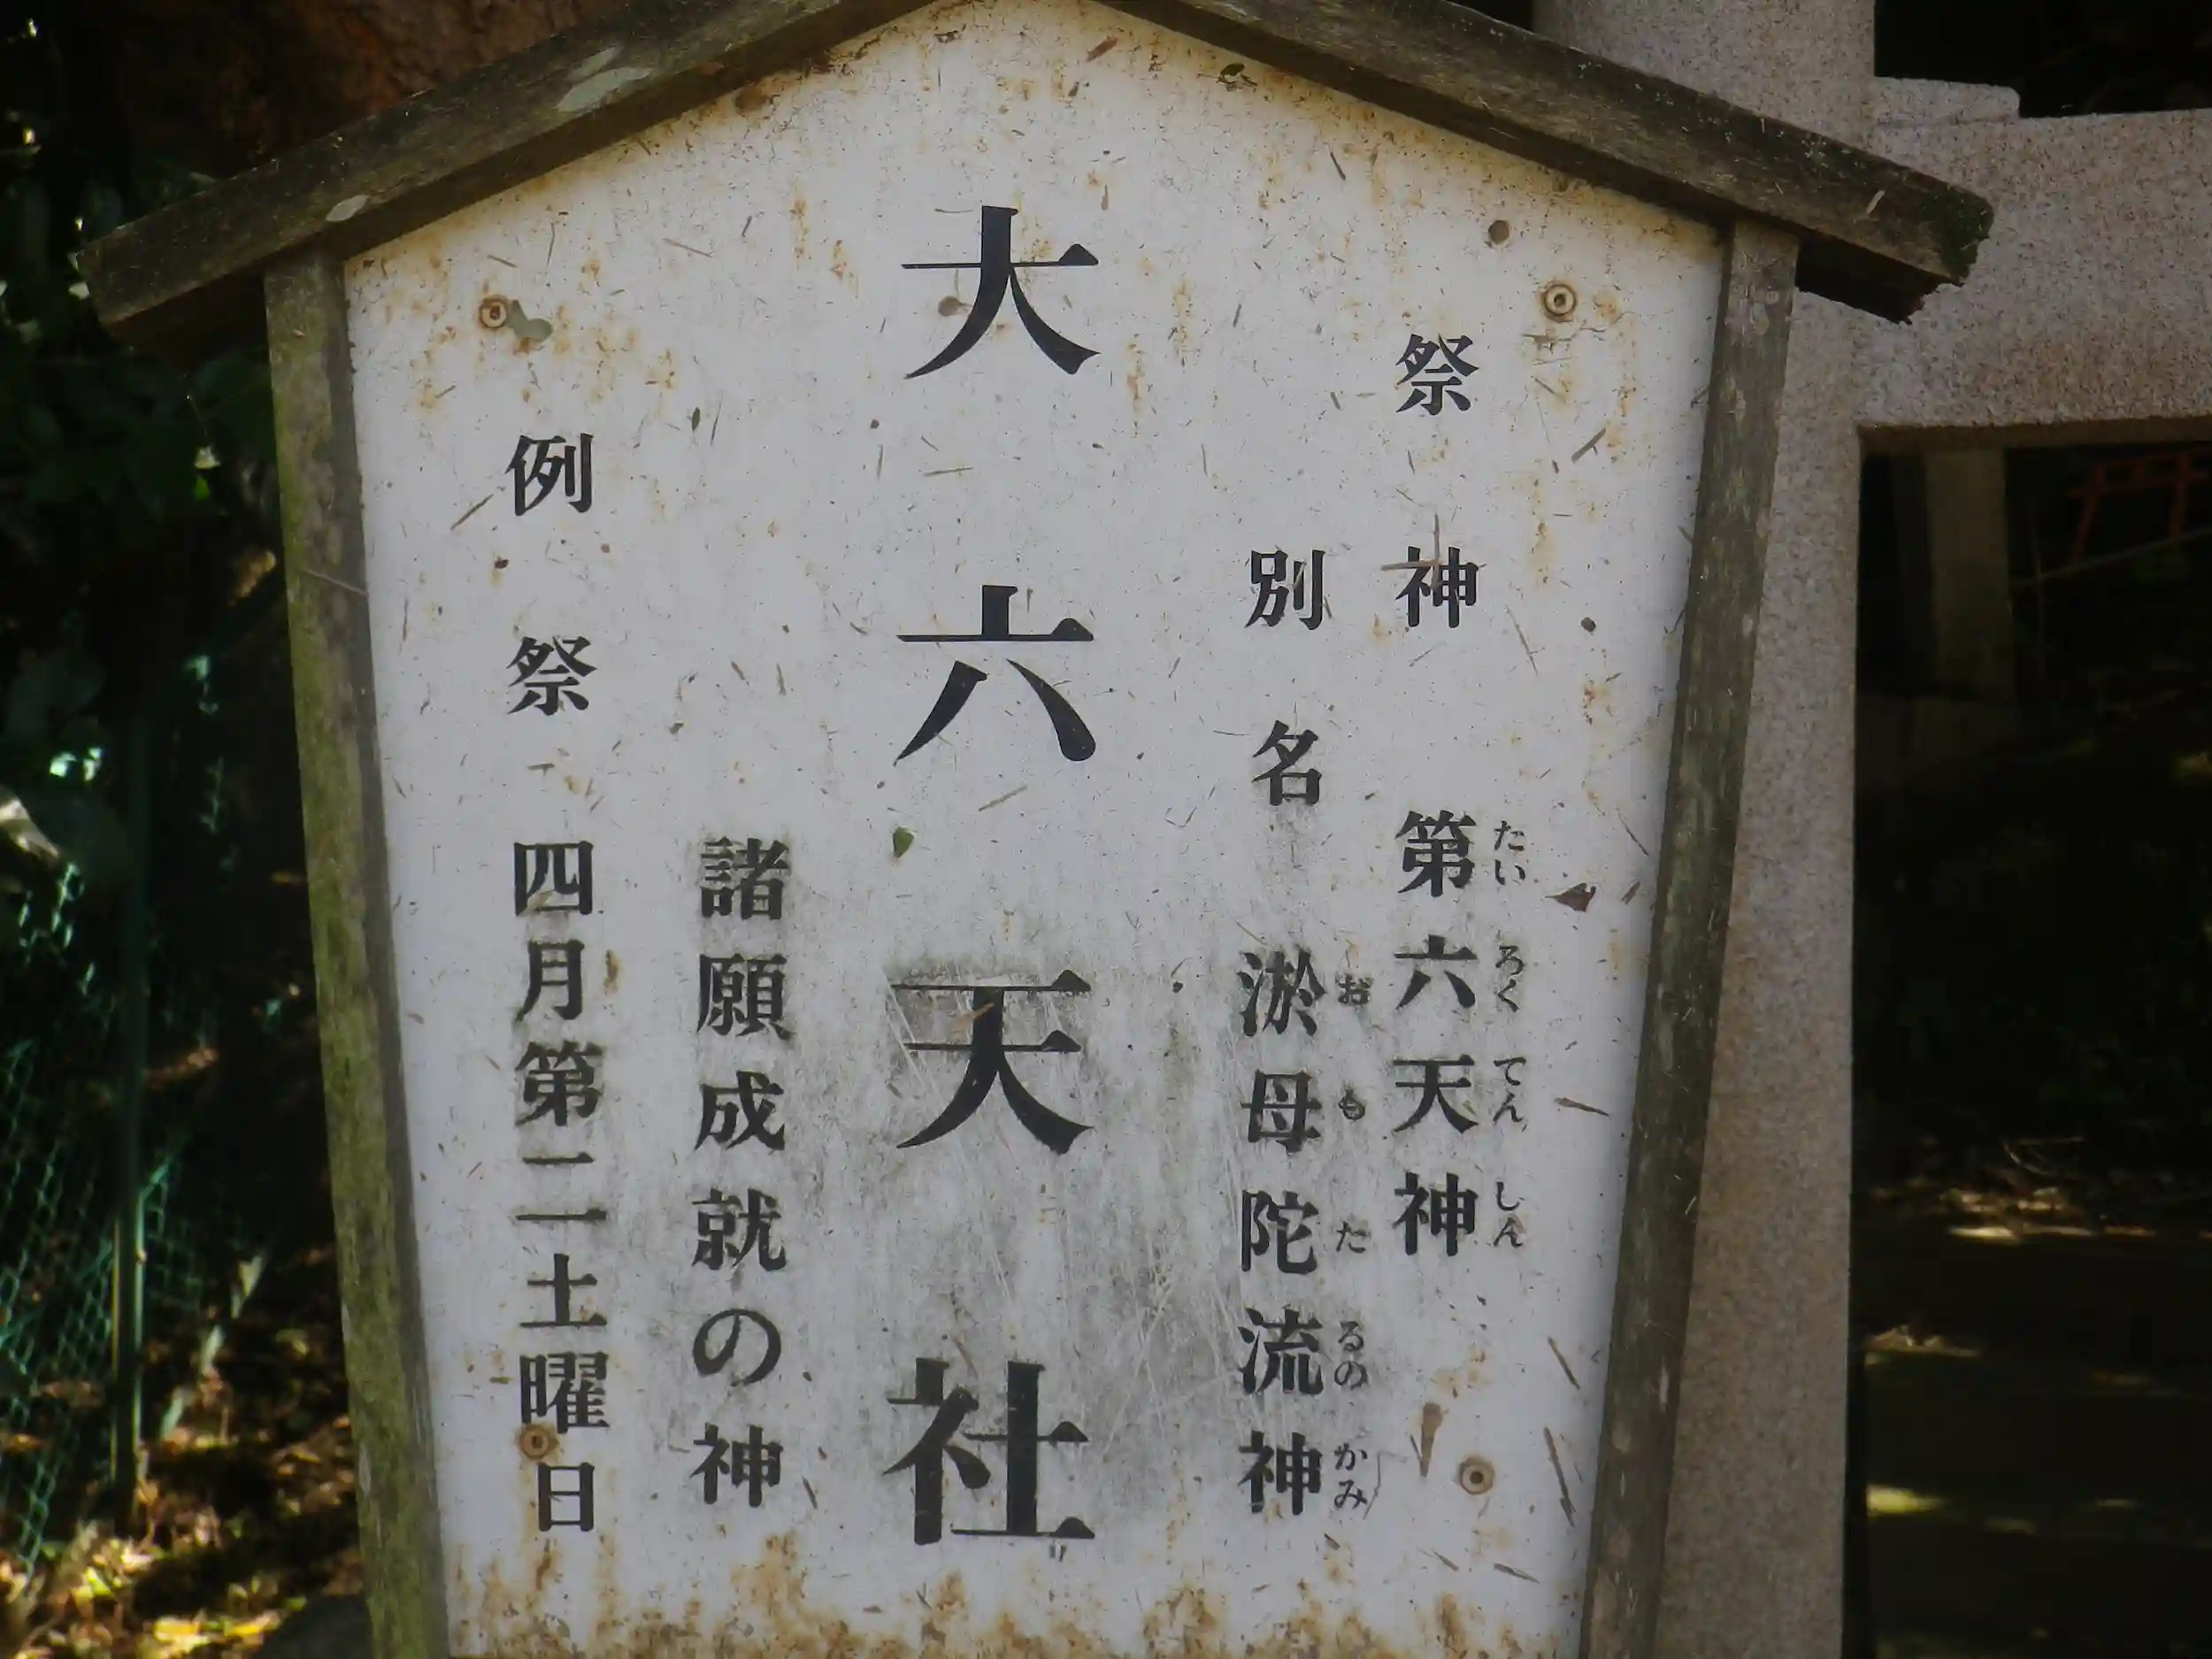 祭神 第六天神
たいろくてんしん
別名 淤母陀流神
おもたるのかみ
大六天社
諸願成就の神
例祭 四月第二土曜日